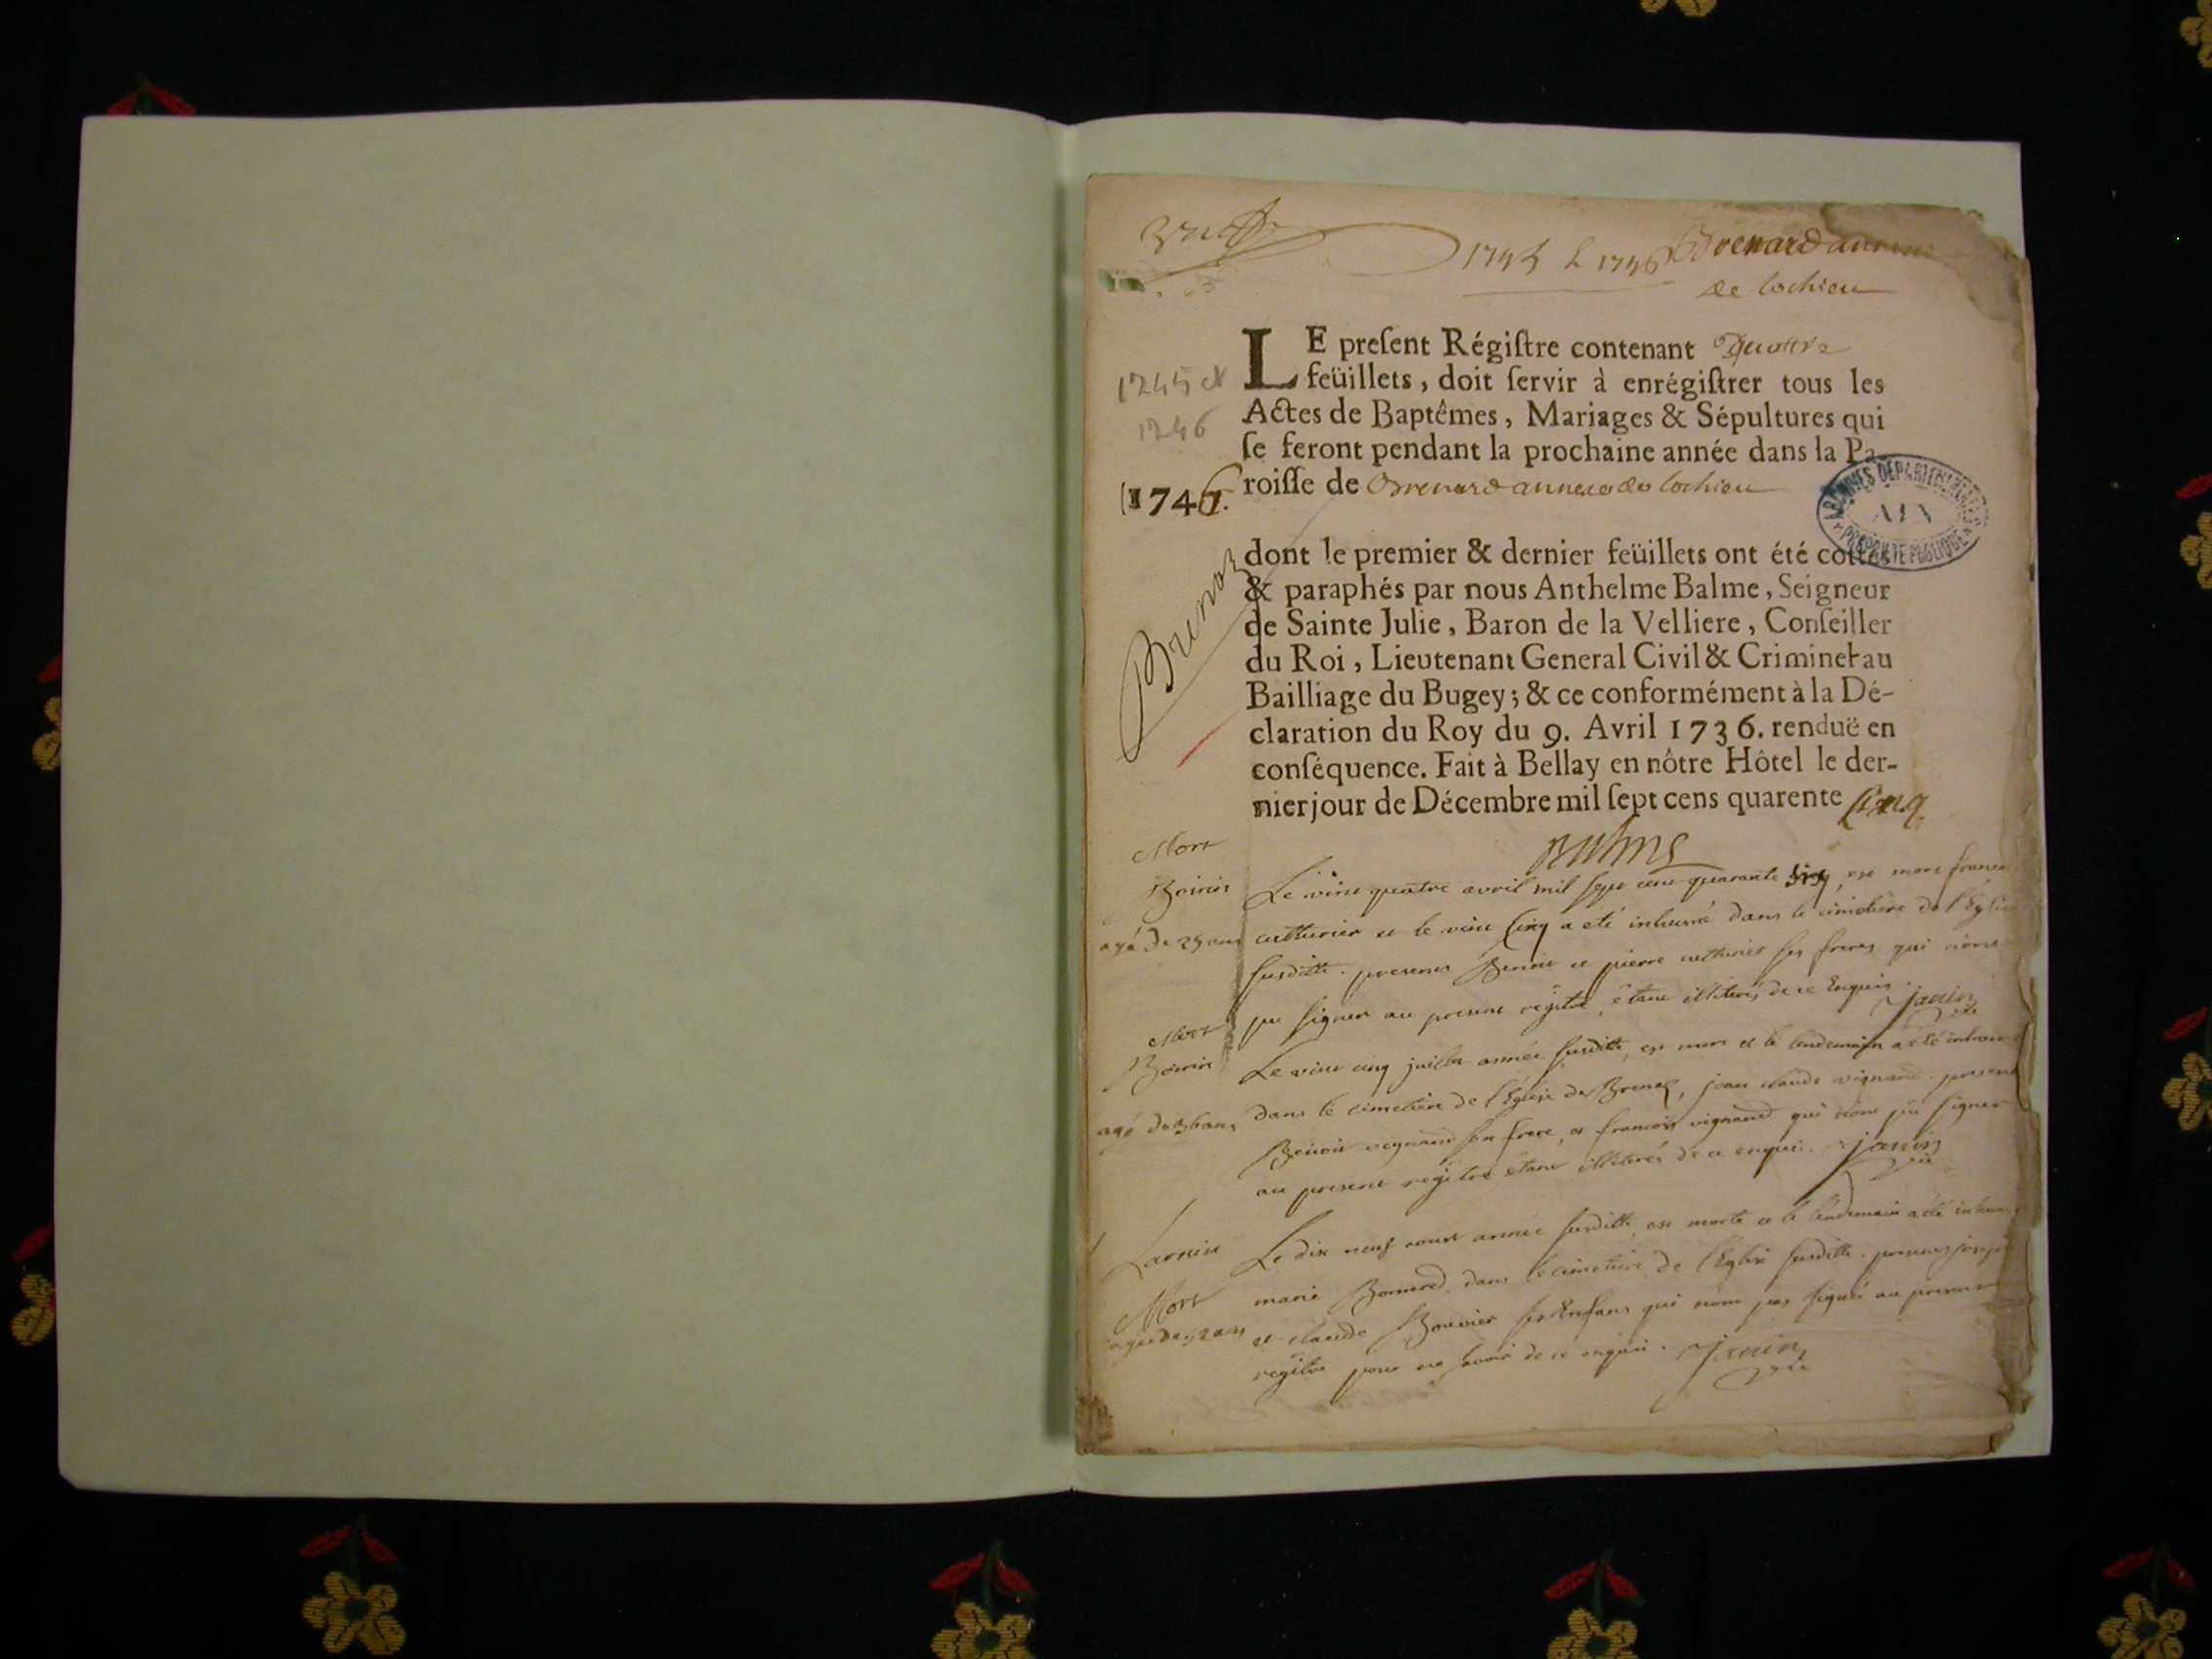 1745 & 1746 Brenard annexe
de lochieu
LE preſent Régiſtre contenant quattre
feüillets, doit ſervir à enrégiſtrer tous les
Actes de Baptêmes, Mariages & Sépultures qui
ſe feront pendant la prochaine année dans la Pa-
roiſſe de Brenard annexe de lochieu
1745 et
1746
1746.
Brenaz
dont le premier & dernier feüillets ont été cottés
& paraphés par nous Anthelme Balme, Seigneur
de Sainte Julie, Baron de la Velliere, Conſeiller
du Roi, Lieutenant General Civil & Criminel au
Bailliage du Bugey; & ce conformément à la Dé-
claration du Roy du 9. Avril 1736. renduë en
conſéquence. Fait à Bellay en nôtre Hôtel le der-
nier jour de Décembre mil ſept cens quarente cinq
ARCHIVES DEPARTEMENTALES
AIN
PROPRIETE PUBLIQUE
Balme
Mort
Le vint quatre avril mil sept cent quarante six, est mort
agé de 25 ans
cutturier et le vint cinq a eté inhumé dans le cimetiere de l'Eglise
susditte. presents Benoit et pierre cutturier ses freres qui n'ont
pu signer au present régitre, étant illiterés de ce Enquis. janin
Mort
Le vint cinq juillet année susditte, est mort et le lendemain a été inhumé
agé de 36 ans
dans le cimetiere de l'Eglise de Brenaz, jean claude vignand. present
Benoit vignand son frere, et francois vignand qui n'ont pu signer
au present régitre étant illiterés de ce enquis. janin
Le dix neuf aoust année susditte est morte et le lendemain a été inhumée
Mort
marie Bonnard, dans le cimetiere de l'Eglise susditte. presents joseph
et claude Bouvier ses Enfans qui n'ont pas signé au present
régitre pour ne savoir de ce enquis. janin